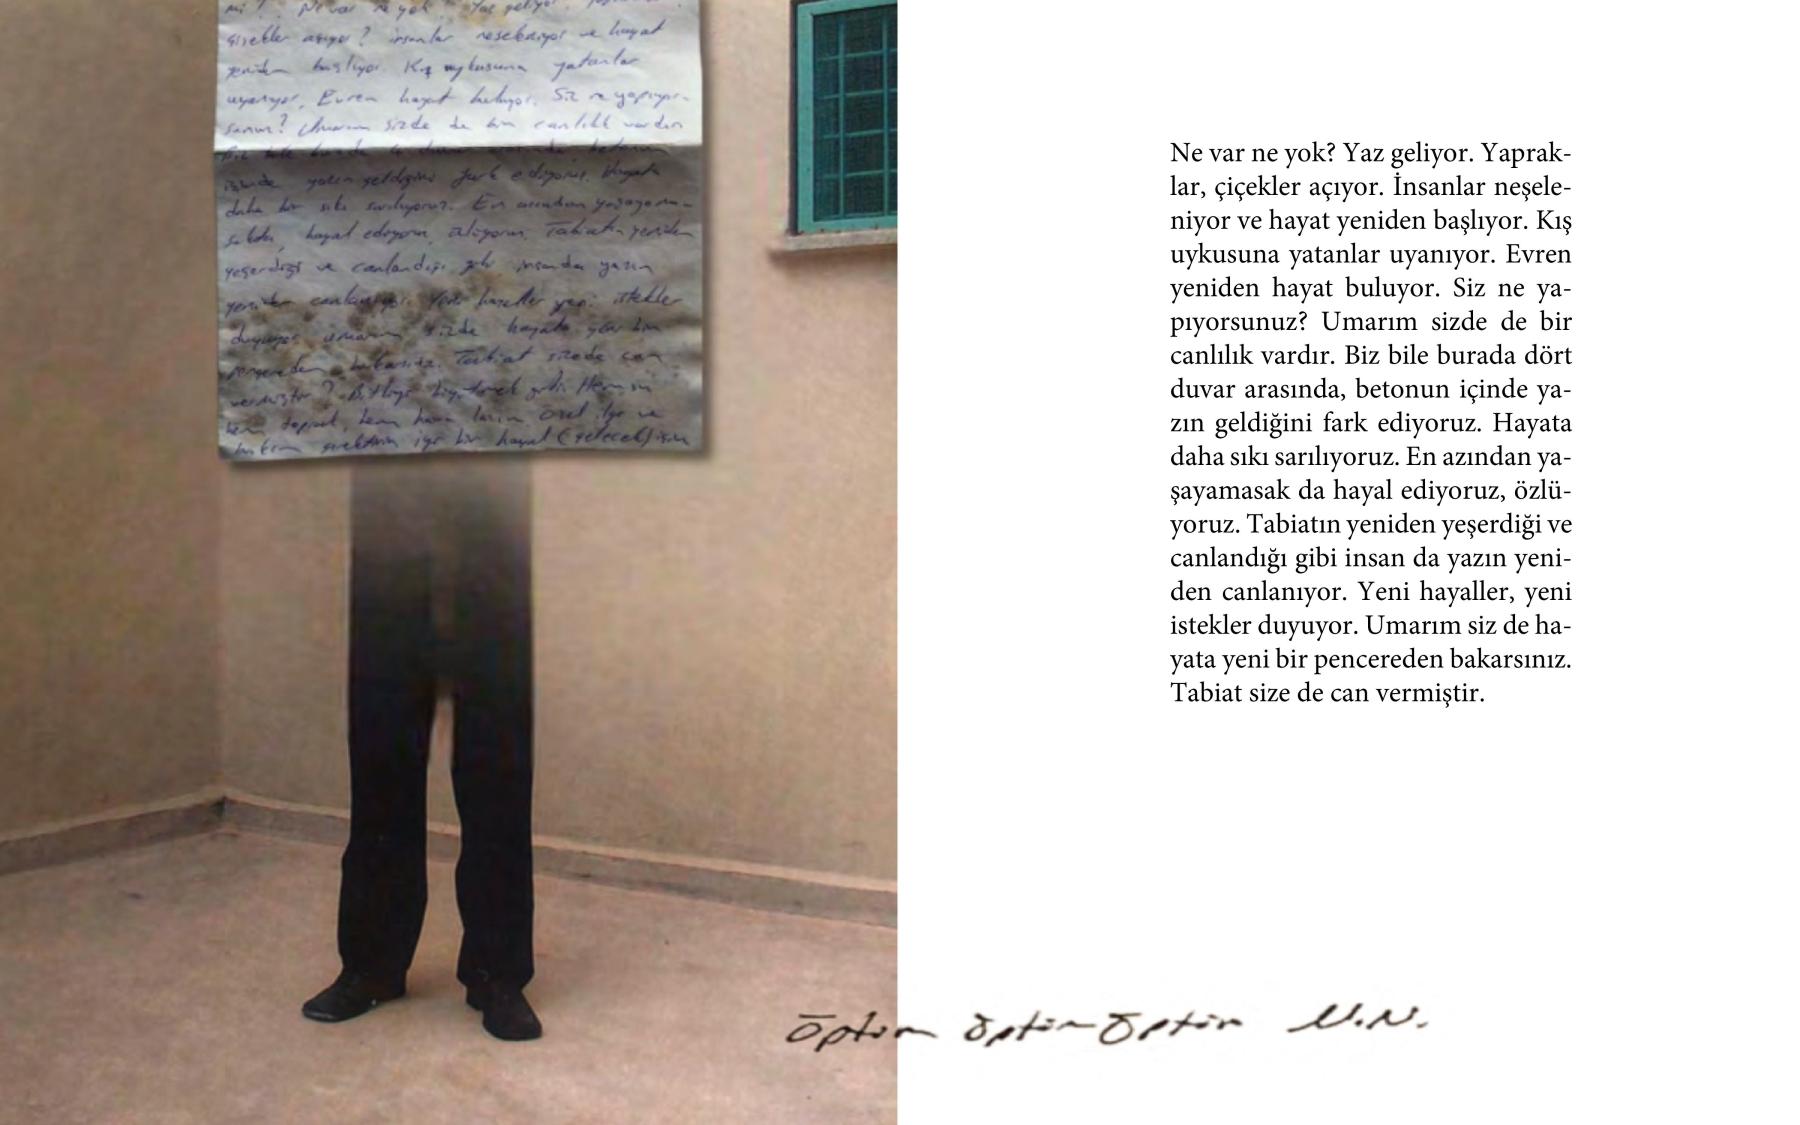 mi? Ne var ne yok? Yaz geliyor.
çiçekler açıyor? insanlar neseleniyor ve hayat
yeniden başlıyor. Kış uykusuna yatanlar
uyanıyor. Evren hayat buluyor. Siz ne yapıyor-
sunuz? Umarım sizde de bir canlılık vardır
Biz bile burada 4 duvar arasında betonun
içinde yazın geldiğini fark ediyoruz. Hayata
daha bir sıkı sarılıyoruz. En azından yaşayama-
sakda, hayal ediyoruz, özlüyoruz. Tabiatın yeniden
yeşerdiği ve canlandığı gibi insanda yazın
yeniden canlanıyor. Yeni hayaller yeni istekler
duyuyor umarım sizde hayata yeni bir
pencereden bakarsınız. Tabiat sizede can
vermiştir? Bitkiyi büyütmek gibi. Hem su
hem toprak, hem hava lazım özel ilgi ve
bakım gerektirir iyi bir hayal (gelecek) için
Ne var ne yok? Yaz geliyor. Yaprak-
lar, çiçekler açıyor. İnsanlar neşele-
niyor ve hayat yeniden başlıyor. Kış
uykusuna yatanlar uyanıyor. Evren
yeniden hayat buluyor. Siz ne ya-
pıyorsunuz? Umarım sizde de bir
canlılık vardır. Biz bile burada dört
duvar arasında, betonun içinde ya-
zın geldiğini fark ediyoruz. Hayata
daha sıkı sarılıyoruz. En azından ya-
şayamasak da hayal ediyoruz, özlü-
yoruz. Tabiatın yeniden yeşerdiği ve
canlandığı gibi insan da yazın yeni-
den canlanıyor. Yeni hayaller, yeni
istekler duyuyor. Umarım siz de ha-
yata yeni bir pencereden bakarsınız.
Tabiat size de can vermiştir.
öptüm öptüm öptüm U.N.